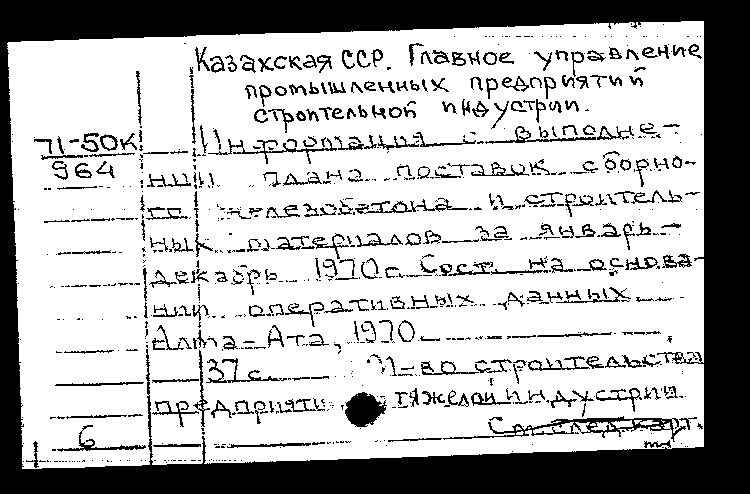 Казахская ССР. Главное управление
промышленных предприятий
строительной индустрии.
71-50К Информация о выполне-
964 нии плана поставок сборно-
го железобетона и строитель-
ных материалов за январь-
декабрь 1970г. Сост. на основа-
нии оперативных данных.
Алма-Ата, 1970.
37с. М-во строительства
предприяти тяжелой индустрии
6 См. след. карт.